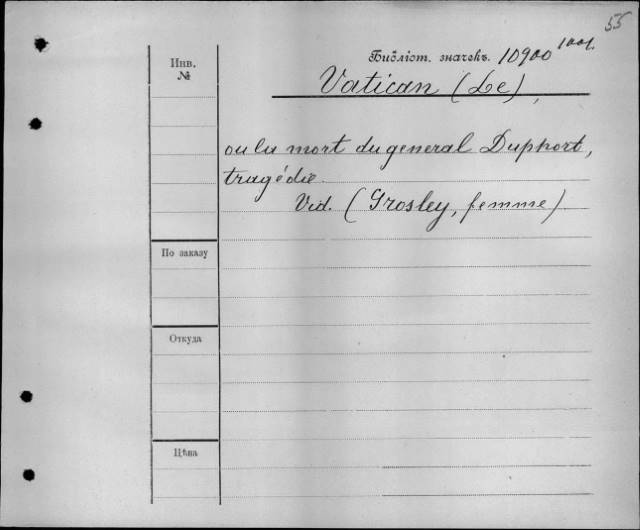 55
Инв.
№
Библіот. значекъ. 10900 1001.
Vatican (Le),
ou la mort du general Duphort,
tragédie.
Vid. (Grosley, femme).
По заказу
Откуда
Цѣна